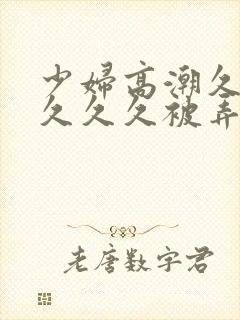 少婦高潮久
久久久被弄
老唐数字君